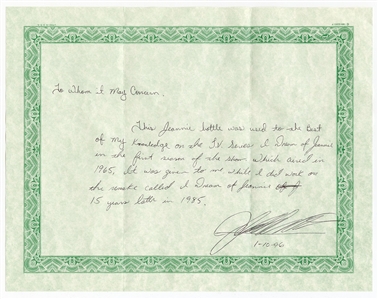 To Whom it May Concern.
This Jeannie bottle was used to the best
of my knowledge on the TV Series I Dream of Jeannie
in the first season of the show which aired in
1965. It was given to me while I did work on
the remake called I Dream of Jeannie
15 years later in 1985.
1-10-06